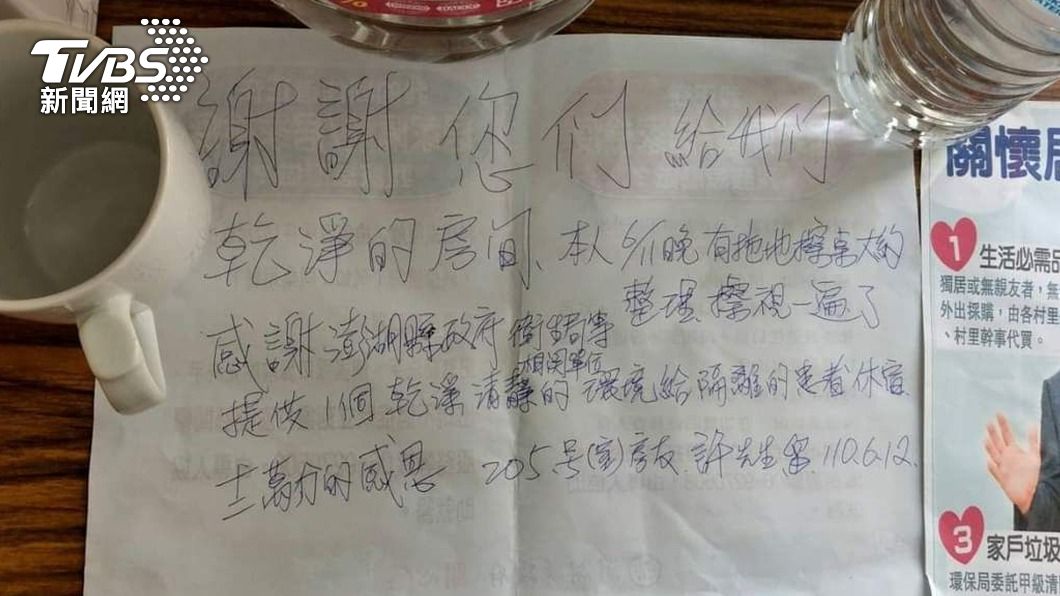 TVBS
新聞網
謝謝您們給我們
乾淨的房间、本人6/11晚有拖地擦桌大約
整理擦視一遍了
感謝澎湖縣政府衛生局等
相関單位
提供1個乾淨清靜的環境給隔離的患者休宿
十二萬分的感恩 205号(室)房友許先生留110.6.12.
關懷居
1 生活必需品
獨居或無親友者,無
外出採購,由各村里
、村里幹事代買。
3 家戶垃圾
環保局委託甲級清